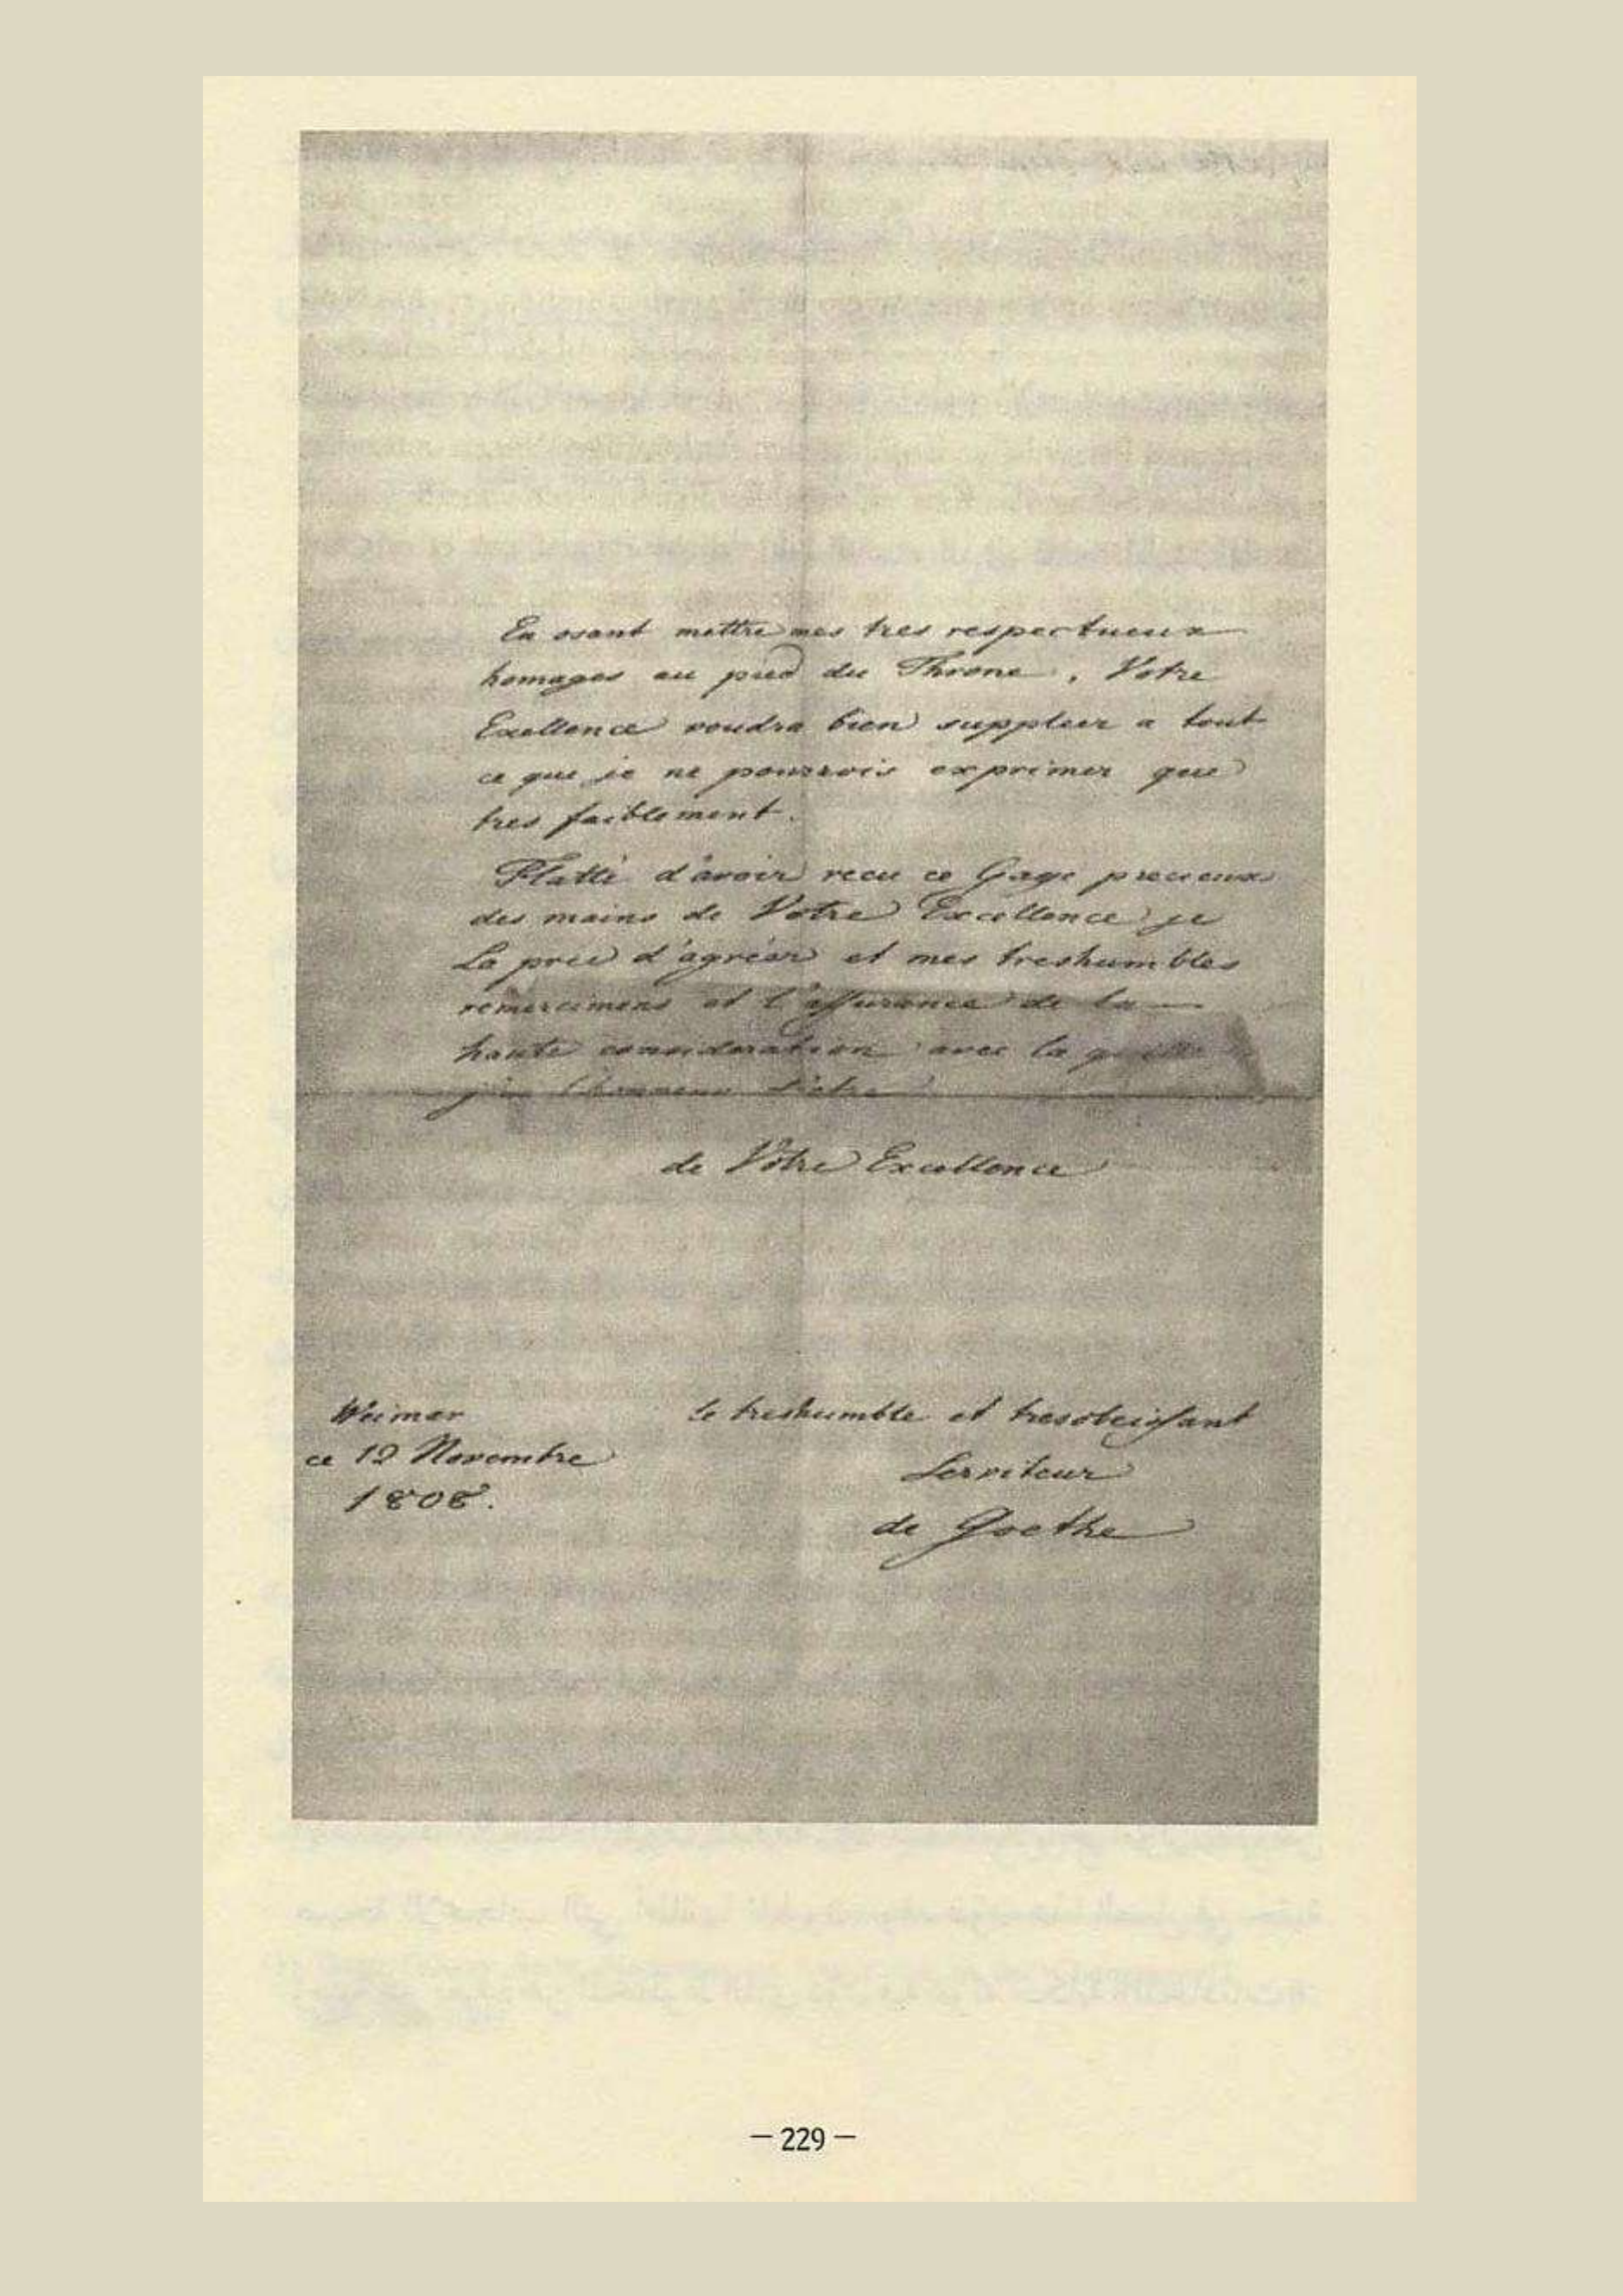 En osant mettre mes tres respectueux
homages au pied du Throne, Votre
Exellence voudra bien suppleer a tout
ce que je ne pourrois exprimer que
tres faiblement.
Flatté d'avoir recu ce Gage precieux
des mains de Votre Excellence je
La prie d'agréer et mes treshumbles
remercimens et l'assurance de la
haute consideration avec la quelle
j'ai l'honneur d'etre
de Votre Excellence
Weimar
ce 12 Novembre
1808.
le treshumble et tresobeissant
Serviteur
de Goethe
— 229 —